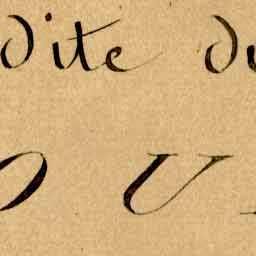 dite du
O U